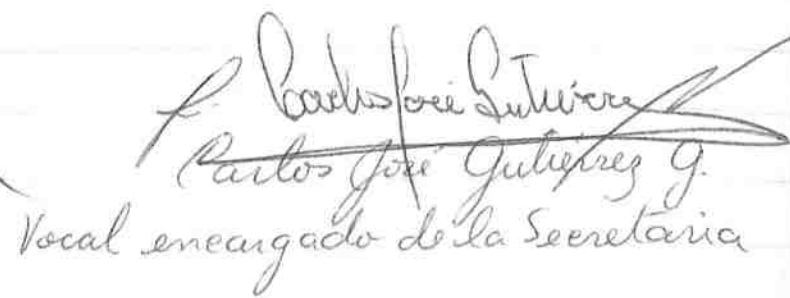 f. Carlos José Gutiérrez
Carlos José Gutiérrez G.
Vocal encargado de la Secretaria